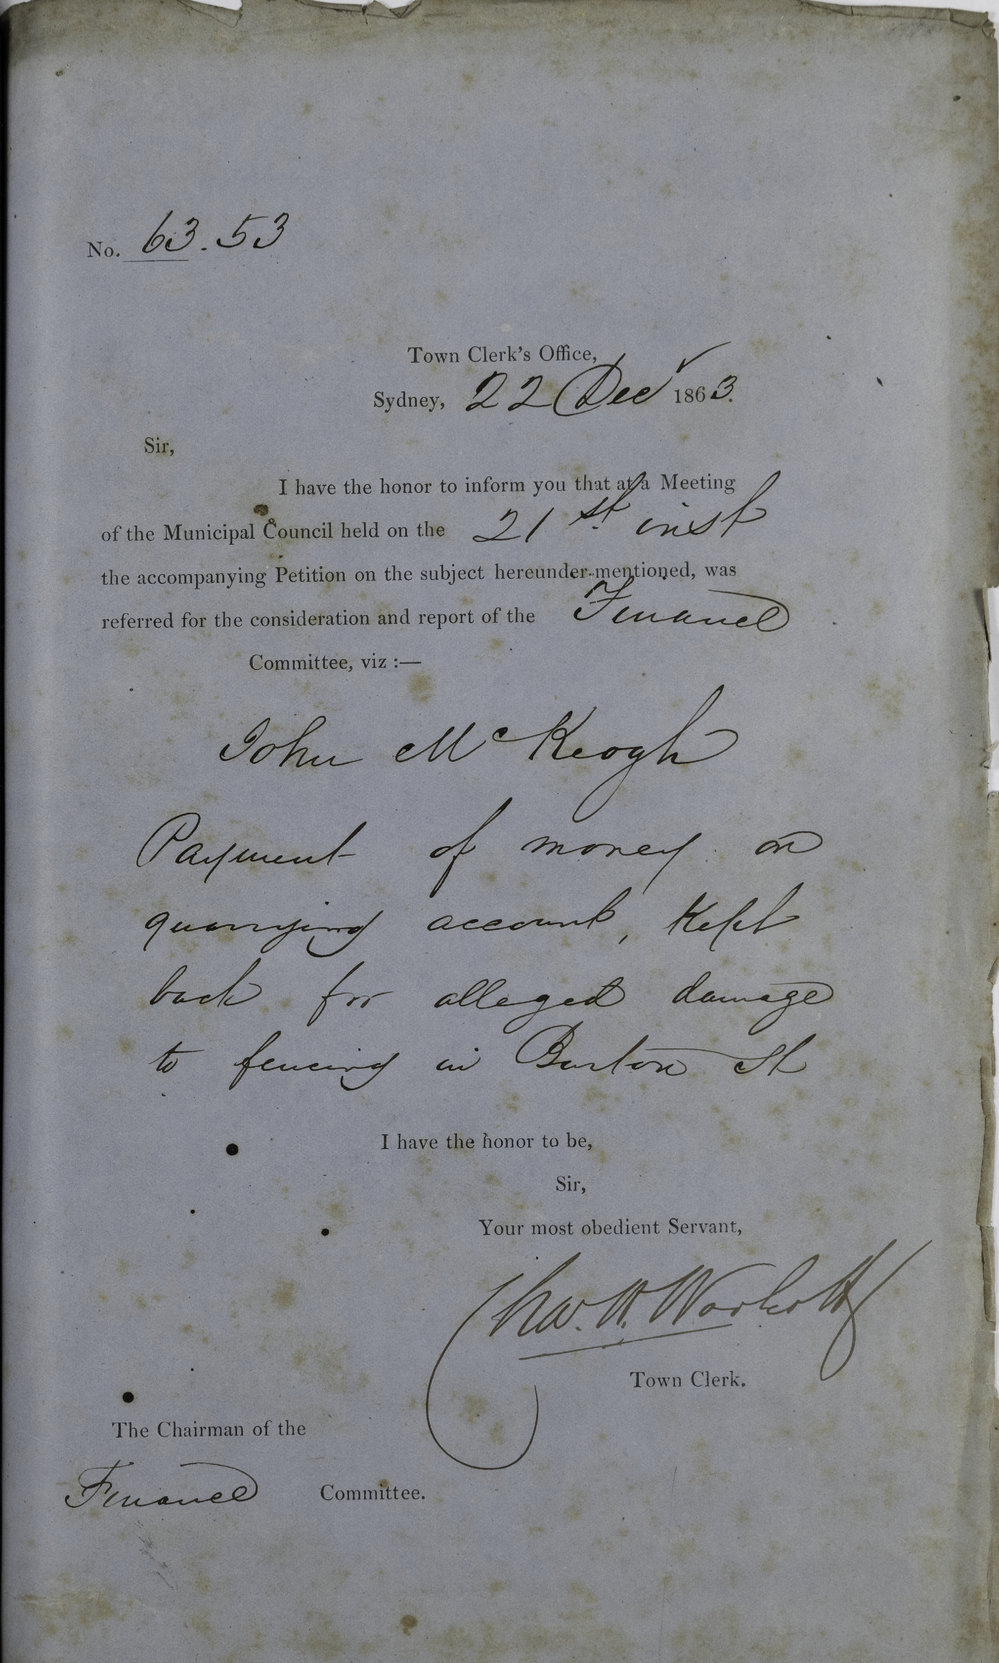 No. 63.53
Town Clerk's Office,
Sydney, 22 Decr 1863.
Sir,
I have the honor to inform you that at a Meeting
of the Municipal Council held on the 21st inst
the accompanying Petition on the subject hereunder-mentioned, was
referred for the consideration and report of the Finance
Committee, viz :—
John McKeogh
Payment of money on
quarrying account, Kept
back for alleged damage
to fencing in Burton St
I have the honor to be,
Sir,
Your most obedient Servant,
Chas. H. Woolcott
Town Clerk.
The Chairman of the
Finance Committee.